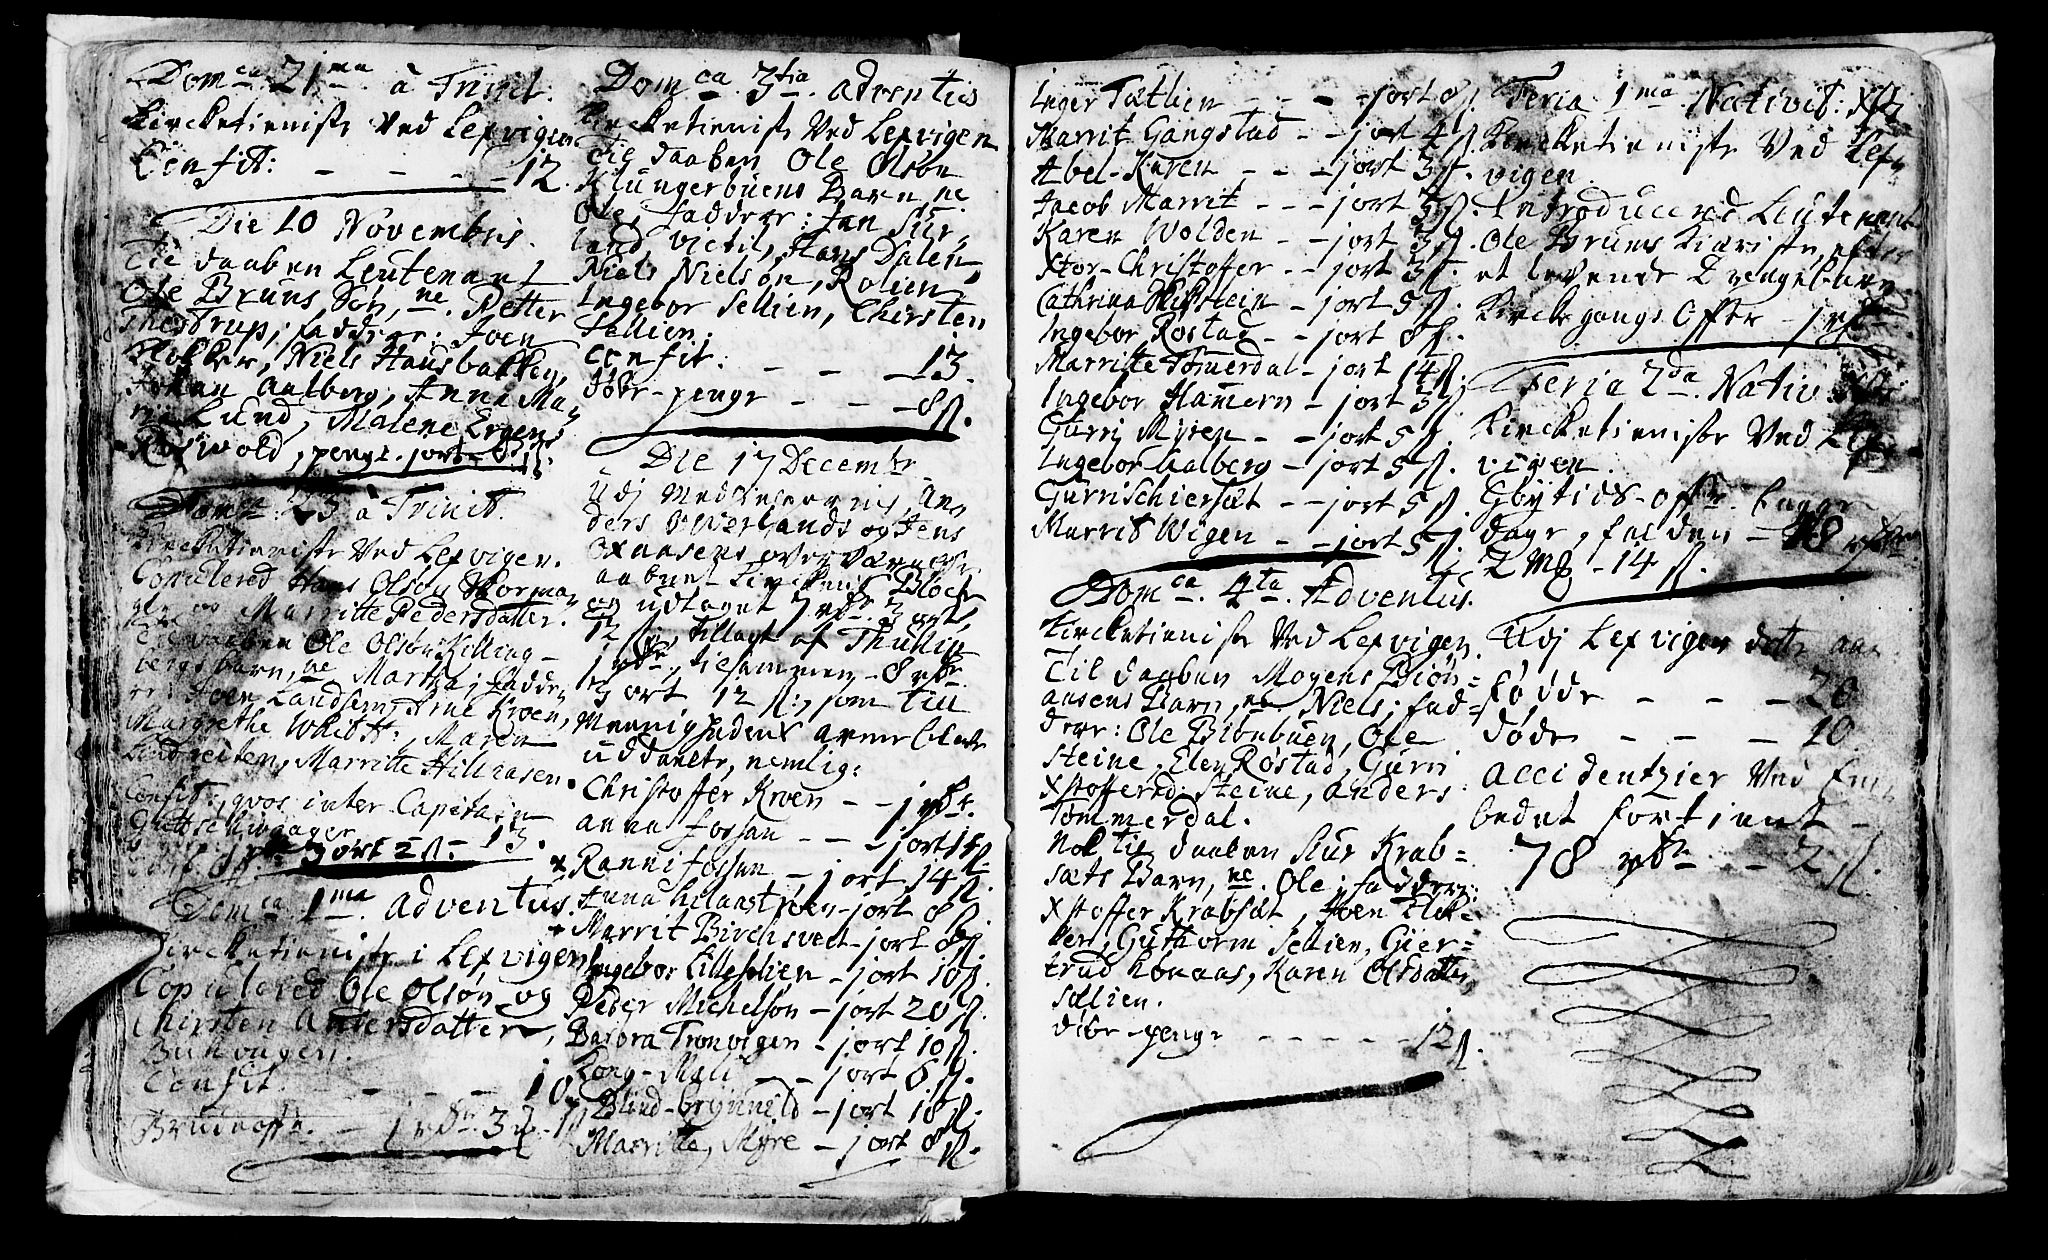 Dom.ca 21.ma à Trinit.
Kircketieniste Ved Lexvigen
Confit: - - - - 12.
Die 10 Novembris.
Til daaben Leutenant
Ole Bruns Søn, ne. Petter
Thestrup; faddrer: Joen
Klokker, Niels Hansbakken,
Johan Aalberg, Anne Ma-
rie Lund, Malene Ergens
Røswold, penge. jort
Dom.ca 23 à Trinit.
Kircketieniste Ved Lexvigen.
Copulered Hans Olsøn
og Marritte Pedersdatter.
Til daaben Ole Olsøn Killing-
bergs barn, ne Martha; fadde-
rer: Joen Landsem, Arne Kroen,
Margrethe Whitt:, Maren
Lindreiten, Marritte Hilhaasen.
Confit:, quos inter Capitain
Guttschwaager - 13.
3 ort 2 ß.
Dom.ca 1.ma Adventus.
Kircketieniste i Lexvigen
Copulered Ole Olsøn og
Chirsten Andersdatter,
Bukvigen.
Confit. - - - 10.
Brudeoffr. - 1 rdr 3
Dom.ca 3.tia Adventus
Kircketieniste Ved Lexvigen
Til daaben Ole Olsøn
Klungerbuens Barn ne.
Ole; faddrer: Jan Sur-
land, victil, Hans Dalen,
Niels Nielsøn, Rolien,
Ingebor Sellien, Chirsten
Sellien.
Confit. - - - 13.
døbe-penge - - - 8 ß.
Die 17 Decembr.
Udj Medhielperenis, An-
ders Owerlands og Jens
Oxaasens overværelse
aabnet Kirckens Block
og udtaget 7 rdr 3 ort,
12 ß, tillagt af Thulin
1 rdr, tilsammen - 8 rdr
3 ort 12 ß:, som till
Menighedens arme blev
uddeelt, nemlig:
Christoffer Kroen - - 1 rdr.
Anna fossan - - - jort 14 ß
Ranni fossan - jort 14 ß.
Anna Kilaastrøen - jort 8 ß.
Marrit Birchsvedt - jort 8 ß.
Ingebor Lillesølien - jort 10 ß.
Peder Michelsøn - jort 20 ß.
Barbra Tronvigen - jort 10 ß.
Kong-Mali - - jort 6 ß.
Blind-Grynnild - jort 18 ß.
Marritte, Myre - jort 8 ß.
Inger Tætlien - - - jort 8 ß.
Marrit Gangstad - - jort 4 ß.
Abel-Karen - - - jort 3 ß.
Jacob Marrit - - - jort 5 ß.
Karen Wolden - - jort 3 ß.
Stor-Christoffer - - jort 3 ß.
Cathrina Hekstein - jort 5 ß.
Ingebor Rostad - - jort 8 ß.
Marritte Tømerdal - jort 14 ß.
Ingebor Hamern - jort 3 ß
Gurri Myren - - jort 5 ß.
Ingebor Aalberg - jort 5 ß.
Gurri Schiersæt - - jort 5 ß.
Marrit Wigen - - jort 5 ß.
Dom.ca 4.ta Adventus.
Kircketieniste Ved Lexvigen.
Til daaben Mogens Biøn-
aasens Barn, ne. Niels; fad-
drer: Ole Bibubuen, Ole
Steine, Elen Røstad, Gurri
Xstofferd: Steine, Anders
Tømmerdal.
Nok til daaben Siur Krab-
sæts Barn, ne. Ole; fadder:
Xstoffer Krabsæt, Joen Klok-
ker, Guthorm Sellien, Gier-
trud Kønaas, Karen Olsdatter
Søllien.
døbe-penge - - - - - 12 ß.
Feria 1.ma Nativit: Xsti
Kircketieniste Ved Lex-
vigen.
Introducered Leutenant
Ole Bruns Kiæriste, efter
et levende Drengebarn
Kirkegangs Offer - 1 rdr
Feria 2.da Nativ: Xsti
Kircketieniste Ved Lex-
vigen.
Høytids-offr. begge
dage, falden - 18 rdr
2 M - 14 ß.
Udj Lexvigen dette aar
fødde - - - 26
døde - - - 10.
Accidentzier Ved Em-
bedet fortient -
78 rdr - 2 ß.